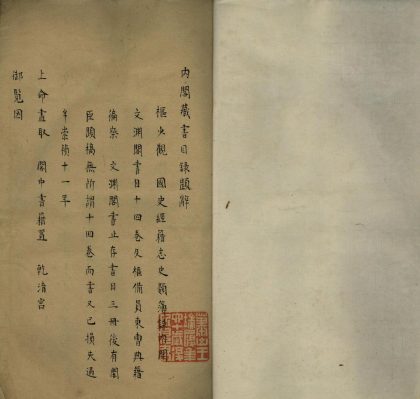 内閣藏書目錄題辭
樞少觀 國史經籍志史類簿錄内
文淵閣書目十四卷及樞備員東曹典籍
備察 文淵閣書止存書目三冊後有閣
臣題稿無所謂十四卷而書又已損失過
半崇禎十一年
上命盡取 閣中書籍置 乾清宮
御覽因